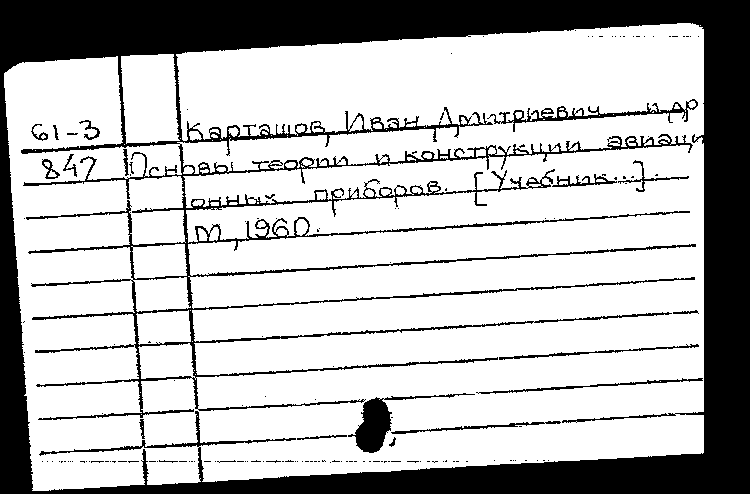 61-3 Карташов, Иван Дмитриевич и др
847 Основы теории и конструкции авиаци
онных приборов. [Учебник...].
М, 1960.